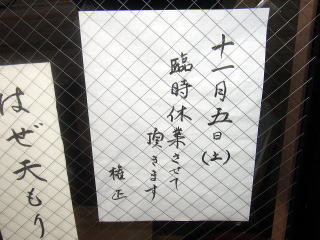 十一月五日(土)
臨時休業させて
頂きます
権正
はぜ天もり